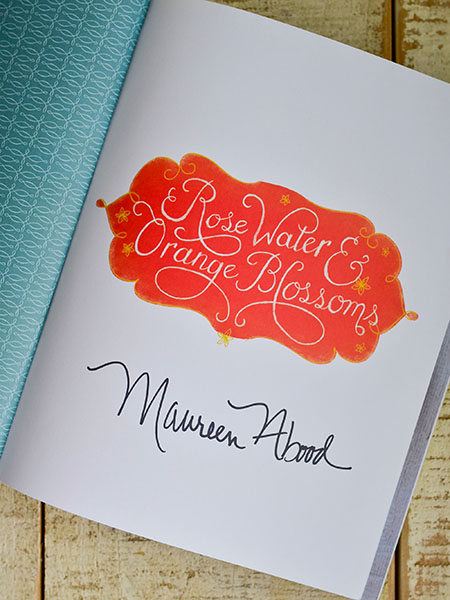 Rose Water &
Orange Blossoms
Maureen Abood